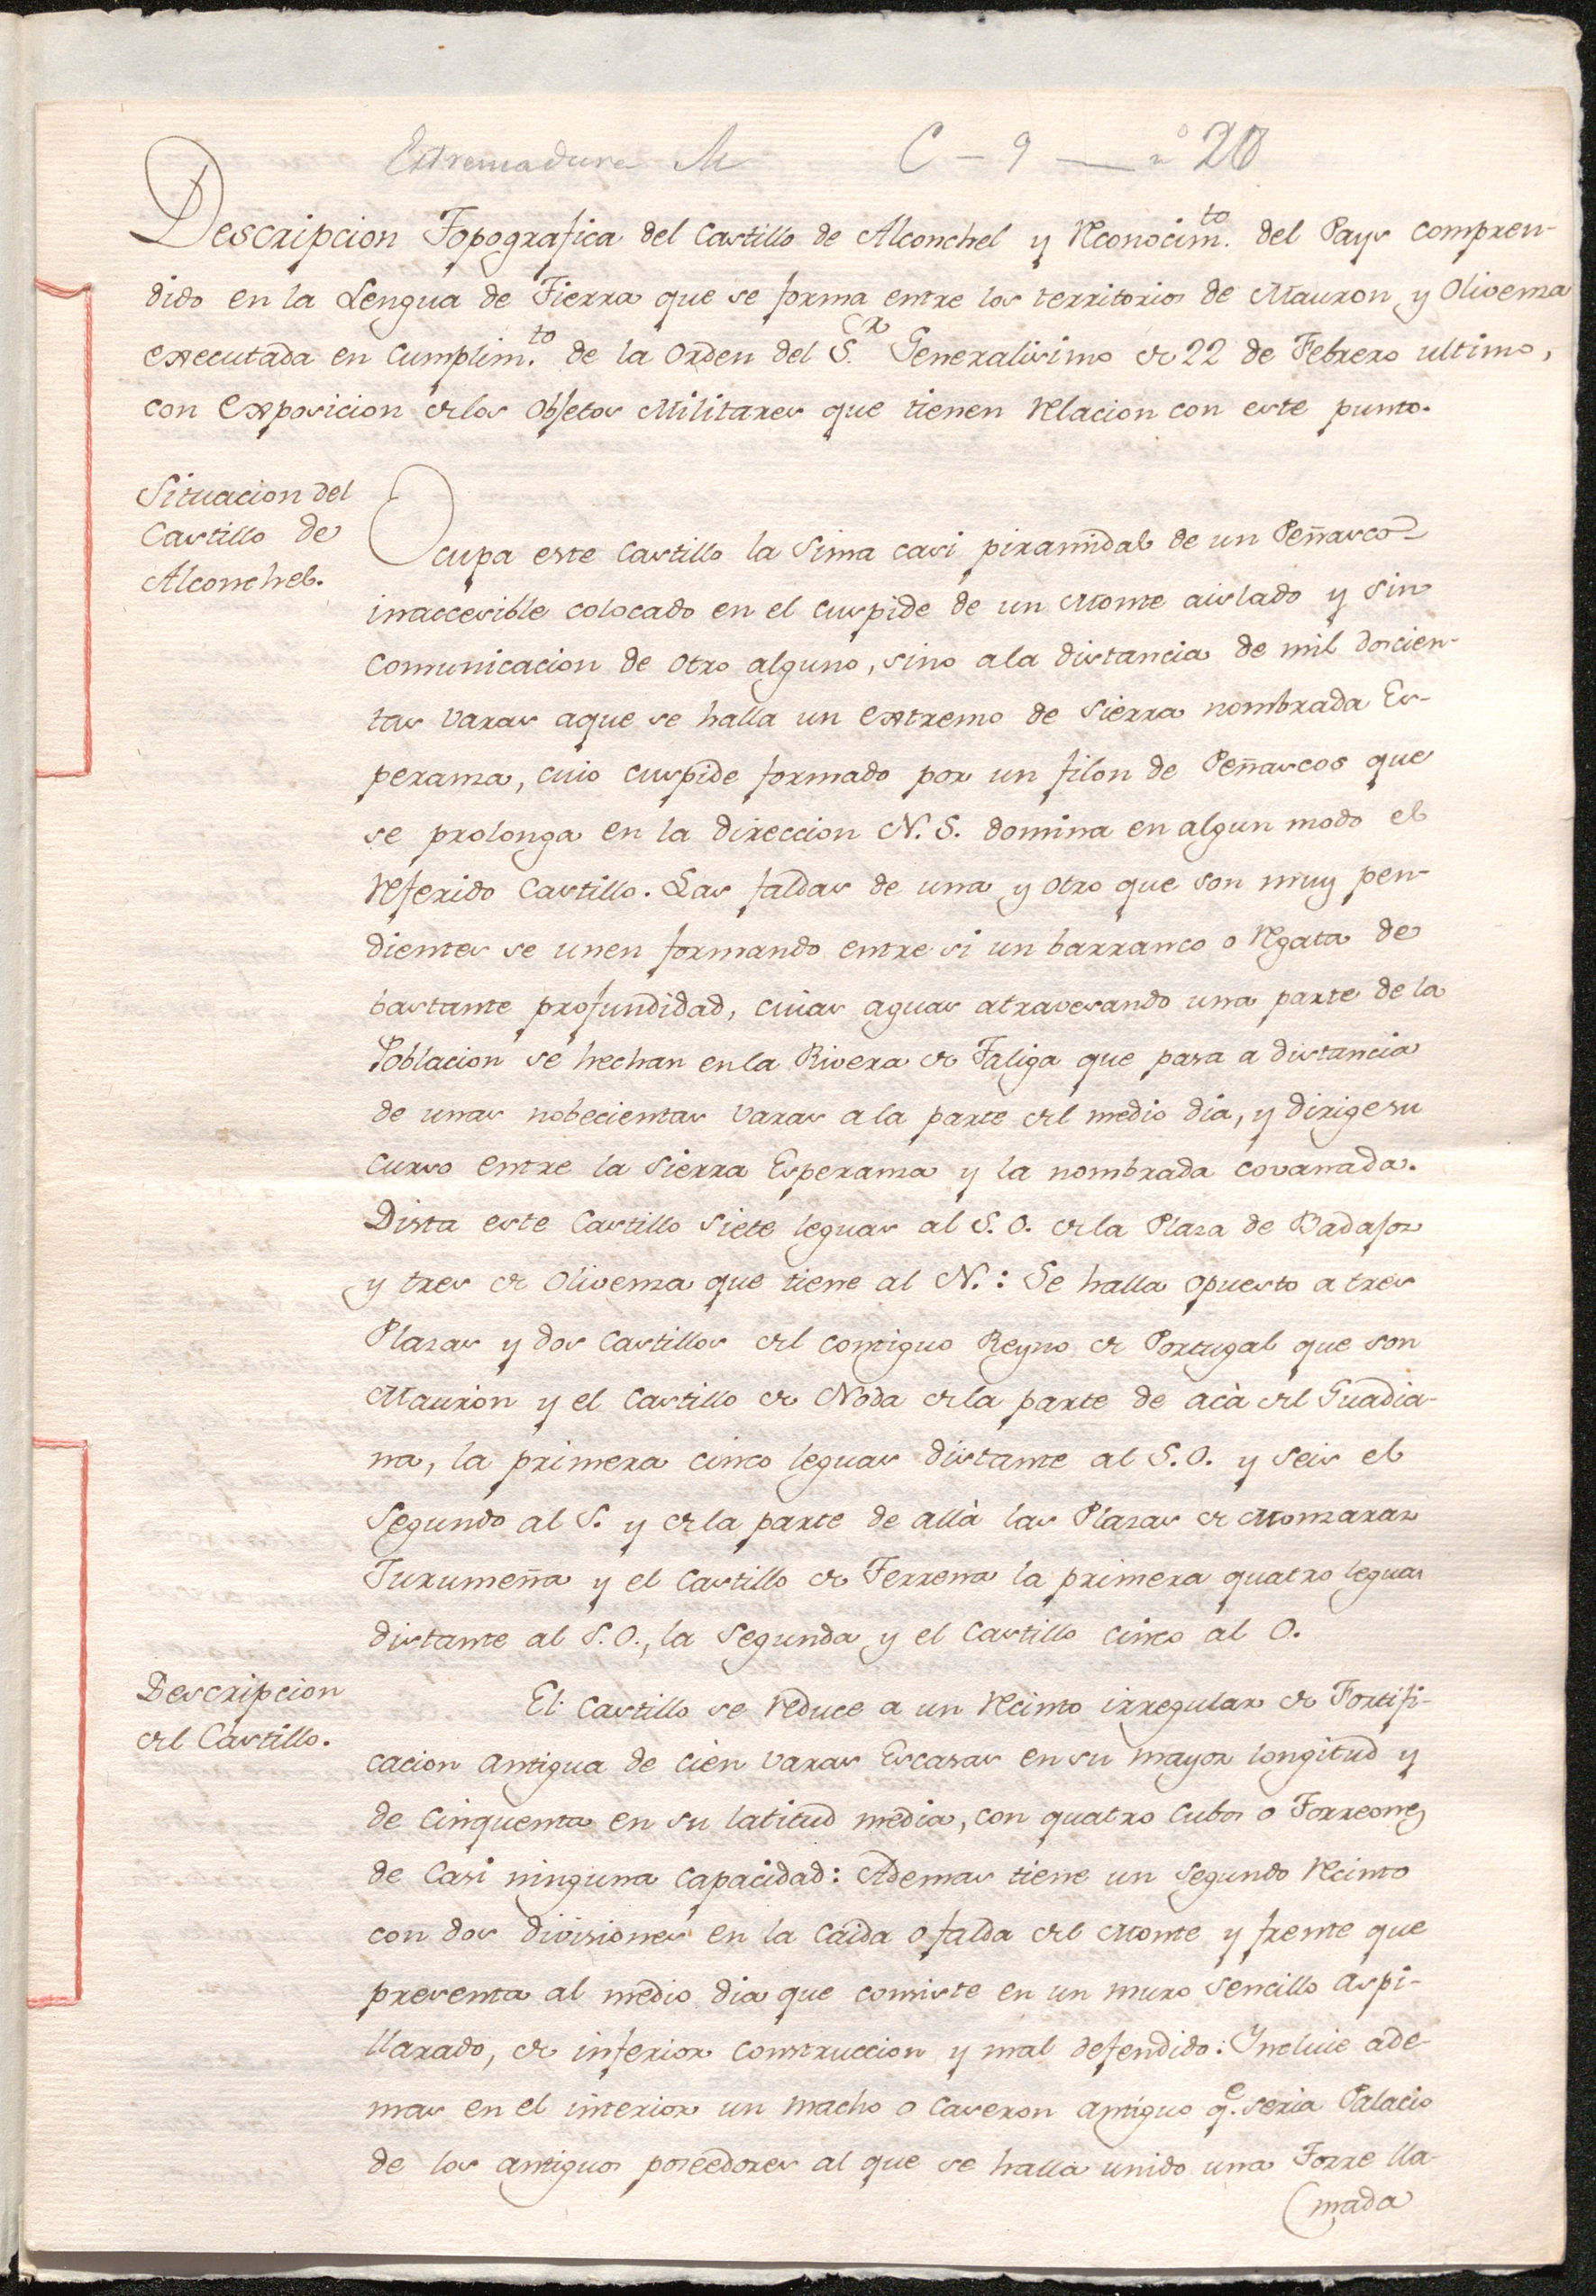 Extremadura M C - 9 — nº 20
Descripcion Topografica del Castillo de Alconchel y Reconocim.to del Pays compren-
dido en la Lengua de Tierra que se forma entre los territorios de Mauron y Olivenza
executada en Cumplim.to de la Orden del S.or Generalisimo de 22 de Febrero ultimo,
con Exposicion de los Objetos Militares que tienen Relacion con este punto.
Situacion del
Castillo de
Alconchel.
Ocupa este Castillo la Sima casi piramidal de un Peñasco
inaccesible colocado en el Cuspide de un Monte aislado y sin
Comunicacion de otro alguno, sino ala distancia de mil doscien-
tas varas aque se halla un extremo de Sierra nombrada Es-
peranza, cuio cuspide formado por un filon de Peñascos que
se prolonga en la direccion N. S. domina en algun modo el
Referido Castillo. Las faldas de una y otro que son muy pen-
dientes se unen formando entre si un barranco o Regata de
bastante profundidad, cuias aguas atravesando una parte de la
Poblacion se hechan en la Rivera de Taliga que pasa a distancia
de unas nobecientas varas a la parte del medio dia, y dirige su
curso entre la Sierra Esperanza y la nombrada covanada.
Dista este Castillo siete leguas al S. O. de la Plaza de Badajoz
y tres de Olivenza que tiene al N.: Se halla opuesto a tres
Plazas y dos Castillos del contiguo Reyno de Portugal que son
Mauròn y el Castillo de Noda de la parte de acà del Guadia-
na, la primera cinco leguas distante al S.O. y seis el
Segundo al S. y de la parte de allà las Plazas de Monzaraz
Jurumeña y el Castillo de Terrena la primera quatro leguas
distante al S. O., la Segunda y el Castillo cinco al O.
Descripcion
del Castillo.
El Castillo se Reduce a un Recinto irregular de Fortifi-
cacion Antigua de cièn varas Escasas en su mayor longitud y
de Cinquenta en su latitud media, con quatro Cubos o Torreones
de Casi ninguna Capacidad: Ademas tiene un segundo Recinto
con dos divisiones en la Caida o falda del Monte y frente que
presenta al medio dia que consiste en un muro Sencillo Aspi-
llarado, de inferior construccion y mal defendido: Incluie ade-
mas en el interior un macho o Caseron antiguo q.e seria Palacio
de los antiguos poseedores al que se halla unido una Torre lla-
mada